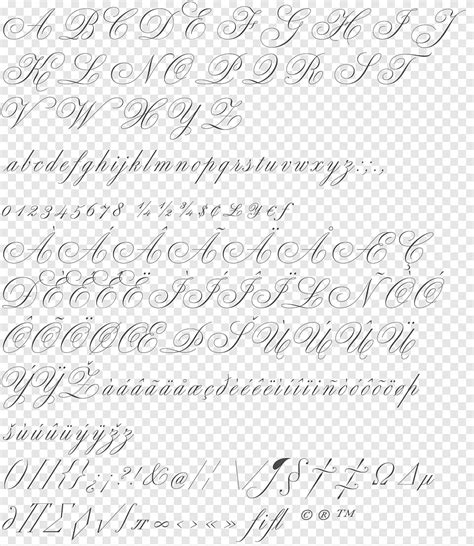 A B C D E F G H I J
K L N O P Q R S T
V W X Y Z
abcdefghijklmnopqrstuvwxyz:;.,
012345678 ¼ ½ ¾ $ ¢ £ ¥ € ƒ
À Á Â Ã Ä Å Æ Ç
Ð È É Ê Ë Ì Í Î Ï Ł Ñ Ò Ó
Ô Õ Ö Ø Œ Þ Š Ù Ú Û Ü
Ý Ÿ Ž àáâãäåæçðèéêëìíîïıñòóôõöøþ
šùúûüýÿž
()/[]{}¡¿?!&@|¦ \ ¶ § † ‡ Ω Δ μ
∂ ∏ ∑ ◊ √ ∫ π ∞ ‹ › « » fi fl © ® ™